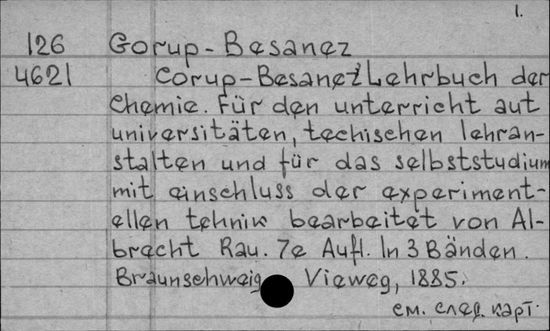 1.
126 Gorup-Besanez
4621 Corup-Besanez Lehrbuch der
Chemie. Für den unterricht aut
universitäten, techischen lehran-
stalten und für das selbststudium
mit einschluss der experiment-
ellen tehnik bearbeitet von Al-
brecht Rau. 7e Aufl. In 3 Bänden.
Braunschweig Vieweg, 1885.
см. след. карт.